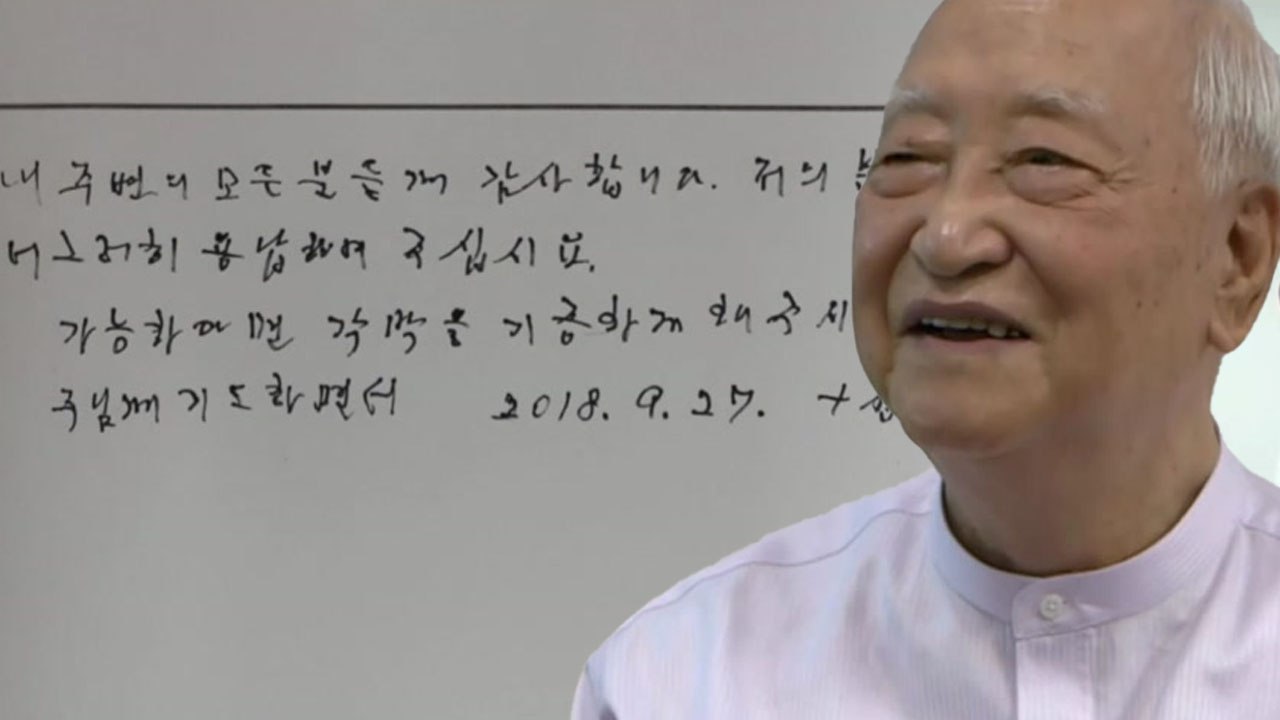 내 주변의 모든 분들께 감사합니다. 저의
너그러히 용납하여 주십시요.
가능하다면 각막을 기증하게 해주시
주님께 기도하면서 2018. 9. 27. +